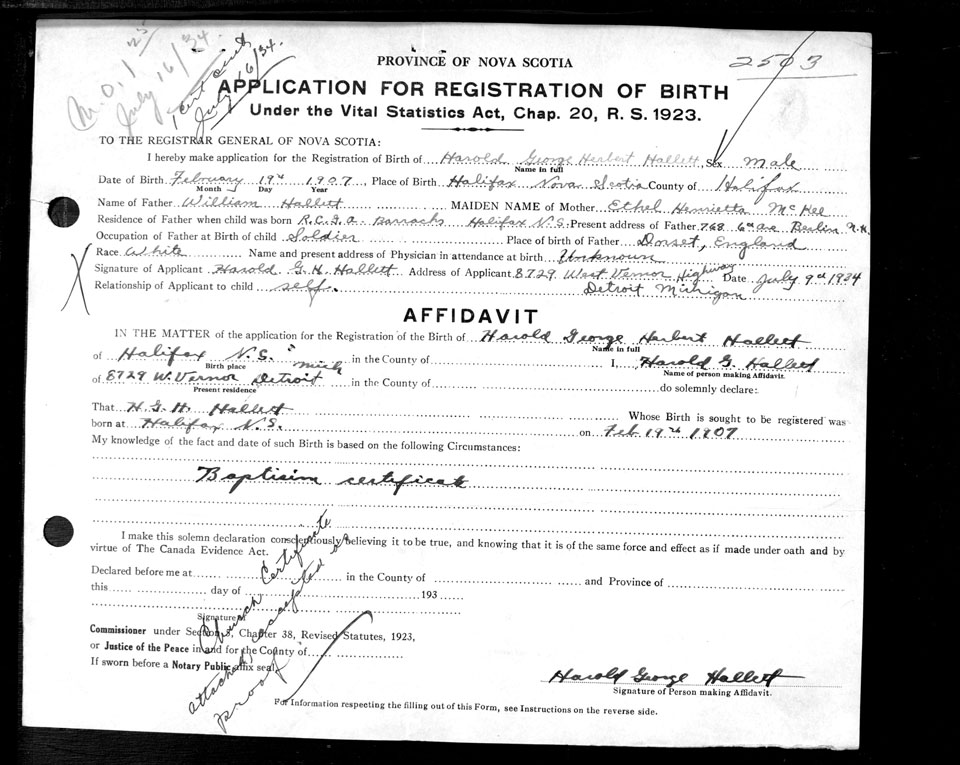 M.O. 1 25
July 16/34.
1 cert sent
July 16/34.
2503
PROVINCE OF NOVA SCOTIA
APPLICATION FOR REGISTRATION OF BIRTH
Under the Vital Statistics Act, Chap. 20, R. S. 1923.
TO THE REGISTRAR GENERAL OF NOVA SCOTIA:
I hereby make application for the Registration of Birth of Harold George Herbert Hallett, Sex Male
Name in full
Date of Birth February 19th 1907 Place of Birth Halifax Nova Scotia County of Halifax
Month Day Year
Name of Father William Hallett MAIDEN NAME of Mother Ethel Henrietta McKee
Residence of Father when child was born R.C.G.A. Barracks Halifax N.S. Present address of Father 768 6th Ave Berlin N.H.
Occupation of Father at Birth of child Soldier Place of birth of Father Dorset, England
Race White Name and present address of Physician in attendance at birth Unknown
Signature of Applicant Harold G. H. Hallett Address of Applicant 8729 West Vernor Highway Date July 9th 1934
Relationship of Applicant to child self. Detroit Michigan
AFFIDAVIT
IN THE MATTER of the application for the Registration of the Birth of Harold George Herbert Hallett
Name in full
of Halifax N.S. in the County of I, Harold G. Hallett
Birth place Name of person making Affidavit.
of 8729 W. Vernor Detroit Mich in the County of do solemnly declare:
Present residence
That H.G.H. Hallett Whose Birth is sought to be registered was
born at Halifax N.S. on Feb 19th 1907
My knowledge of the fact and date of such Birth is based on the following Circumstances:
Baptisim certificate
I make this solemn declaration conscientiously believing it to be true, and knowing that it is of the same force and effect as if made under oath and by
virtue of The Canada Evidence Act.
Declared before me at in the County of and Province of
this day of 193
Signature of
Commissioner under Section 3, Chapter 38, Revised Statutes, 1923,
or Justice of the Peace in and for the County of
If sworn before a Notary Public affix seal.
Church Certificate
attached accepted as
proof
Harold George Hallett
Signature of Person making Affidavit.
For Information respecting the filling out of this Form, see Instructions on the reverse side.